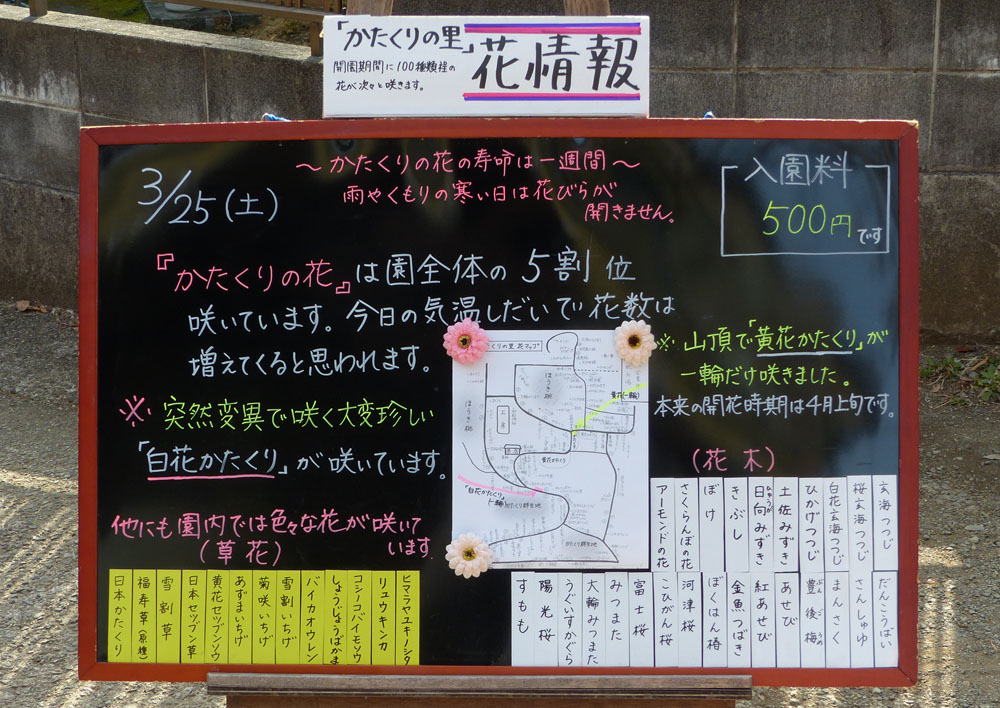 「かたくりの里」
開園期間に100種類程の
花が次々と咲きます。
花情報
3/25(土)
〜かたくりの花の寿命は一週間〜
雨やくもりの寒い日は花びらが
開きません。
入園料
500円です
『かたくりの花』は園全体の5割位
咲いています。今日の気温しだいで花数は
増えてくると思われます。
※突然変異で咲く大変珍しい
「白花かたくり」が咲いています。
※山頂で「黄花かたくり」が
一輪だけ咲きました。
本来の開花時期は4月上旬です。
他にも園内では色々な花が咲いて
います。
(草花)
日本かたくり
福寿草(原種)
雪割草
日本セツブン草
黄花セツブンソウ
あずまいちげ
菊咲いちげ
雪割いちげ
バイカオウレン
しょうじょうばかま
コシノコバイモソウ
リュウキンカ
ヒマラヤユキノシタ
(花木)
アーモンドの花
さくらんぼの花
ぼけ
きぶし
日向みずき
土佐みずき
ひかげつつじ
白花玄海つつじ
桜玄海つつじ
玄海つつじ
すもも
陽光桜
うぐいすかぐら
大輪みつまた
みつまた
富士桜
こひがん桜
河津桜
ぼくはん椿
金魚つばき
紅あせび
あせび
豊後梅
まんさく
さんしゅゆ
だんこうばい
くりの里 花マップ
黄花かたくり
「白花かたくり」
かたくり群生地
かたくり群生地